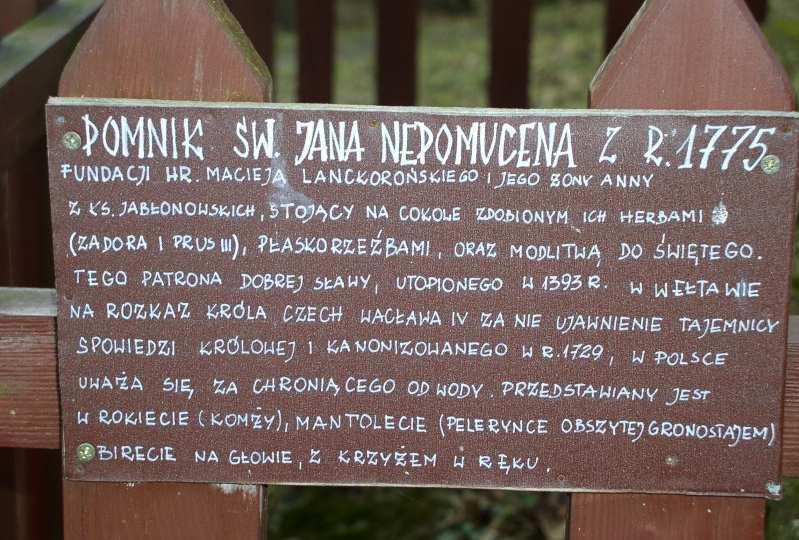 POMNIK ŚW. JANA NEPOMUCENA Z R. 1775
FUNDACJI HR. MACIEJA LANCKOROŃSKIEGO I JEGO ŻONY ANNY
Z KS. JABŁONOWSKICH, STOJĄCY NA COKOLE ZDOBIONYM ICH HERBAMI
(ZADORA I PRUS III), PŁASKORZEŹBAMI, ORAZ MODLITWĄ DO ŚWIĘTEGO.
TEGO PATRONA DOBREJ SŁAWY, UTOPIONEGO W 1393 R. W WEŁTAWIE
NA ROZKAZ KRÓLA CZECH WACŁAWA IV ZA NIE UJAWNIENIE TAJEMNICY
SPOWIEDZI KRÓLOWEJ I KANONIZOWANEGO W R. 1729, W POLSCE
UWAŻA SIĘ, ZA CHRONIĄCEGO OD WODY. PRZEDSTAWIANY JEST
W ROKIECIE (KOMŻY), MANTOLECIE (PELERYNCE OBSZYTEJ GRONOSTAJEM)
BIRECIE NA GŁOWIE, Z KRZYŻEM W RĘKU.